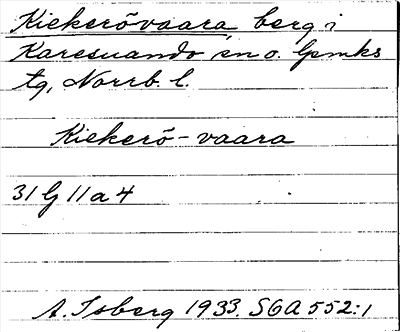 Kiekerövaara berg i
Karesuando sn o. lpmks
tg, Norrb. l.
Kiekerö-vaara
31 G 11 a 4
A. Isberg 1933. SGA 552:1